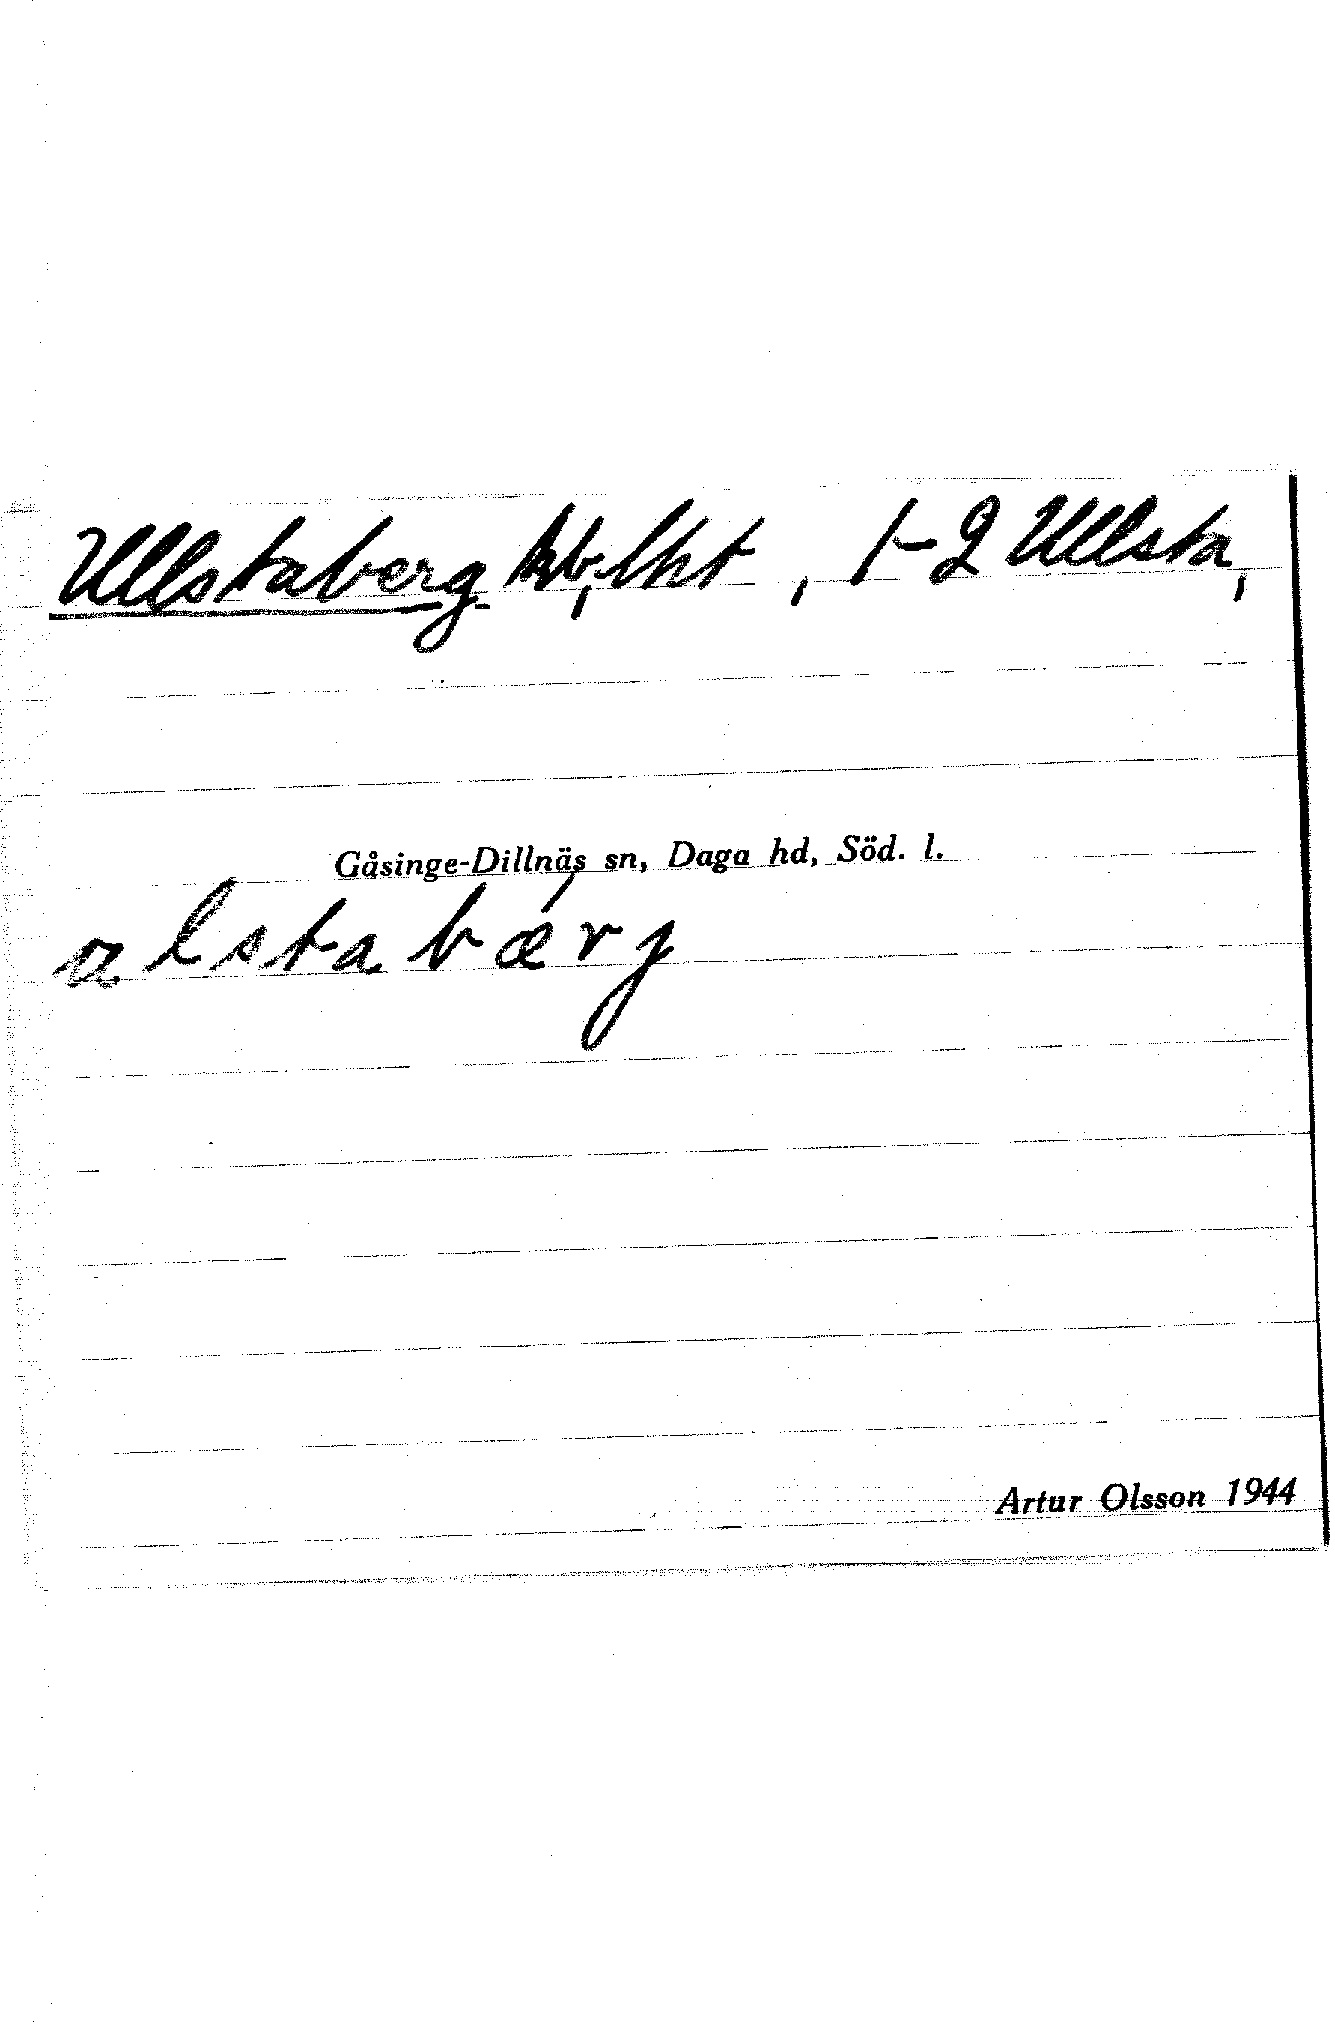 Ullstaberg, lht, 1-2 Ullsta,
Gåsinge-Dillnäs sn, Daga hd, Söd. l.
alstabærj
Artur Olsson 1944